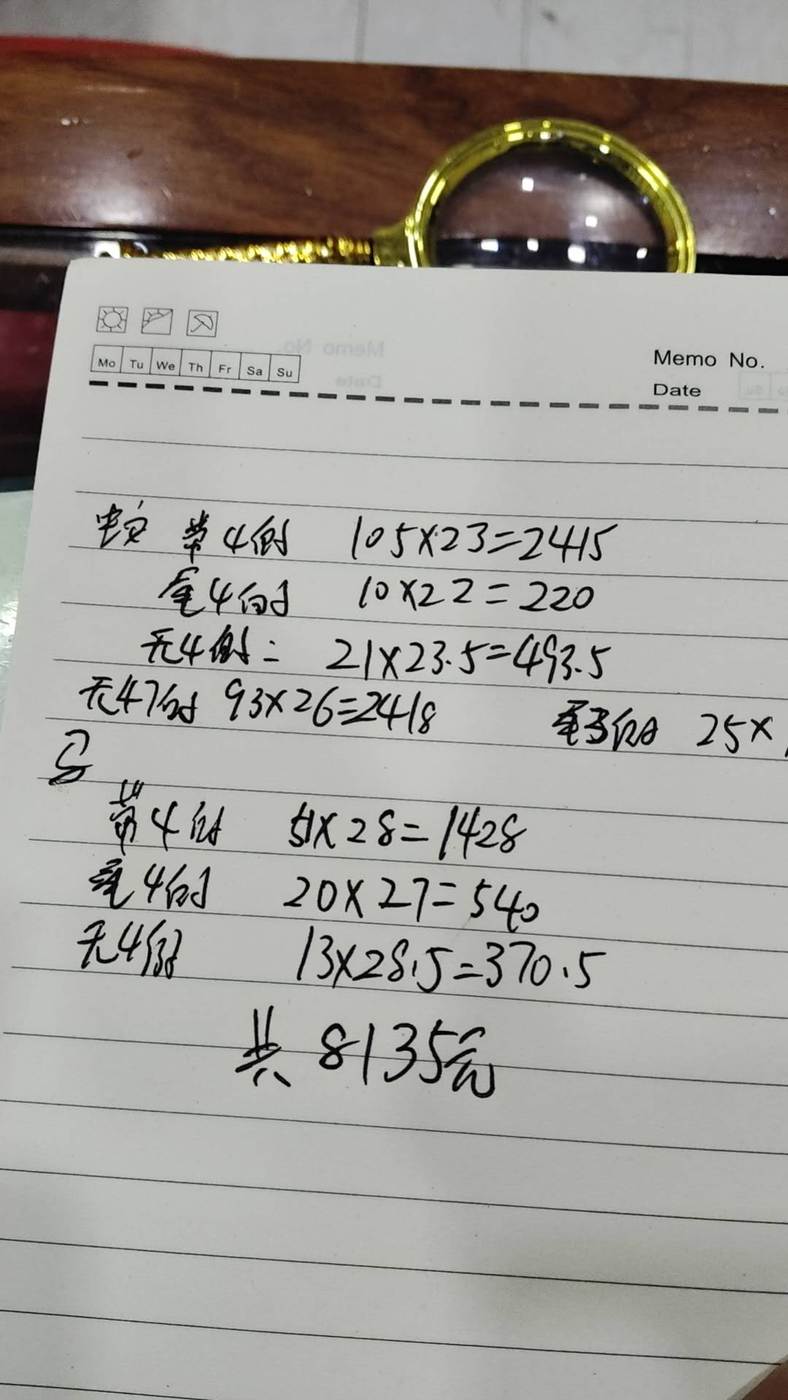 Mo Tu We Th Fr Sa Su
Memo No.
Date
带4的 105×23=2415
尾4的 10×22=220
无4的: 21×23.5=493.5
无47的 93×26=2418
25×
带4的 51×28=1428
尾4的 20×27=540
无4的 13×28.5=370.5
共 8135元